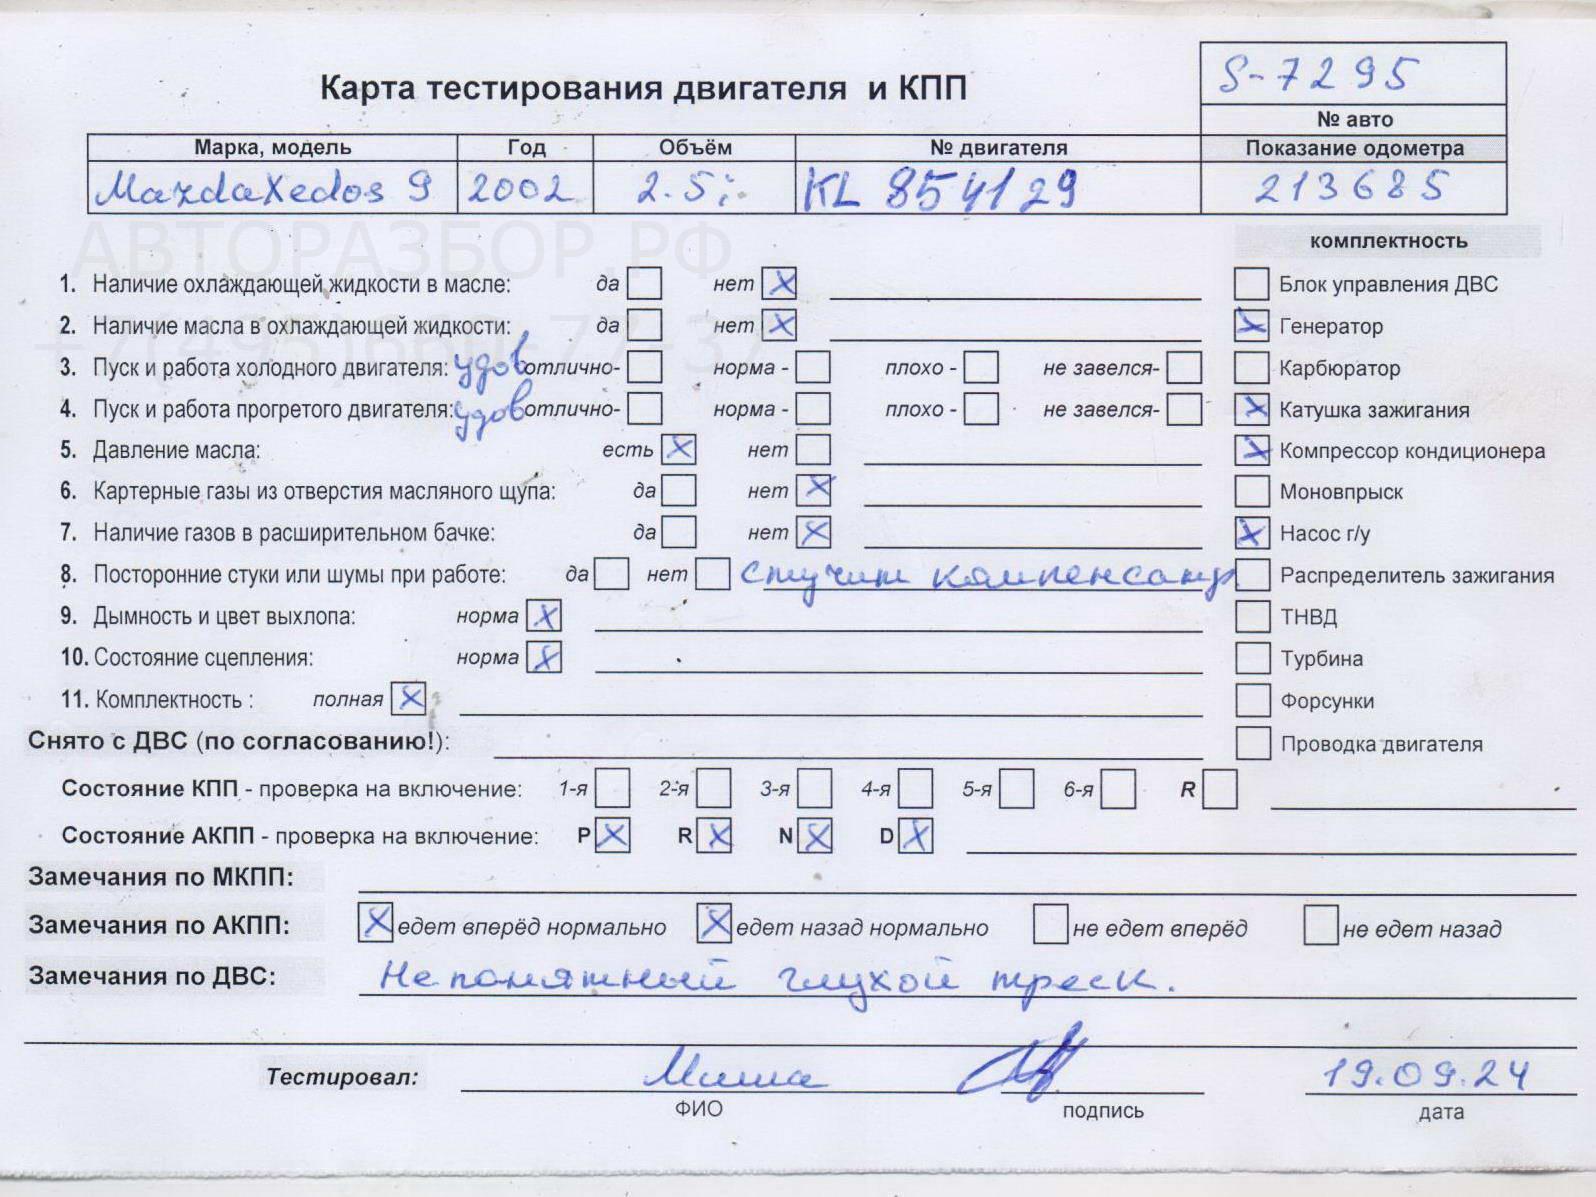 S-7295
Карта тестирования двигателя и КПП
№ авто
Марка, модель Год Объём № двигателя Показание одометра
Mazda Xedos 9 2002 2.5i KL 854129 213685
АВТОРАЗБОР.РФ
+7(495)660-77-37
комплектность
1. Наличие охлаждающей жидкости в масле: да нет X Блок управления ДВС
2. Наличие масла в охлаждающей жидкости: да нет X X Генератор
3. Пуск и работа холодного двигателя: удов отлично- норма - плохо - не завелся- Карбюратор
4. Пуск и работа прогретого двигателя: удов отлично- норма - плохо - не завелся- X Катушка зажигания
5. Давление масла: есть X нет X Компрессор кондиционера
6. Картерные газы из отверстия масляного щупа: да нет X Моновпрыск
7. Наличие газов в расширительном бачке: да нет X X Насос г/у
8. Посторонние стуки или шумы при работе: да нет стучит компенсатр Распределитель зажигания
9. Дымность и цвет выхлопа: норма X ТНВД
10. Состояние сцепления: норма X Турбина
11. Комплектность : полная X Форсунки
Снято с ДВС (по согласованию!): Проводка двигателя
Состояние КПП - проверка на включение: 1-я 2-я 3-я 4-я 5-я 6-я R
Состояние АКПП - проверка на включение: P X R X N X D X
Замечания по МКПП:
Замечания по АКПП: X едет вперёд нормально X едет назад нормально не едет вперёд не едет назад
Замечания по ДВС: Непонятный глухой треск.
Тестировал: Миша 19.09.24
ФИО подпись дата